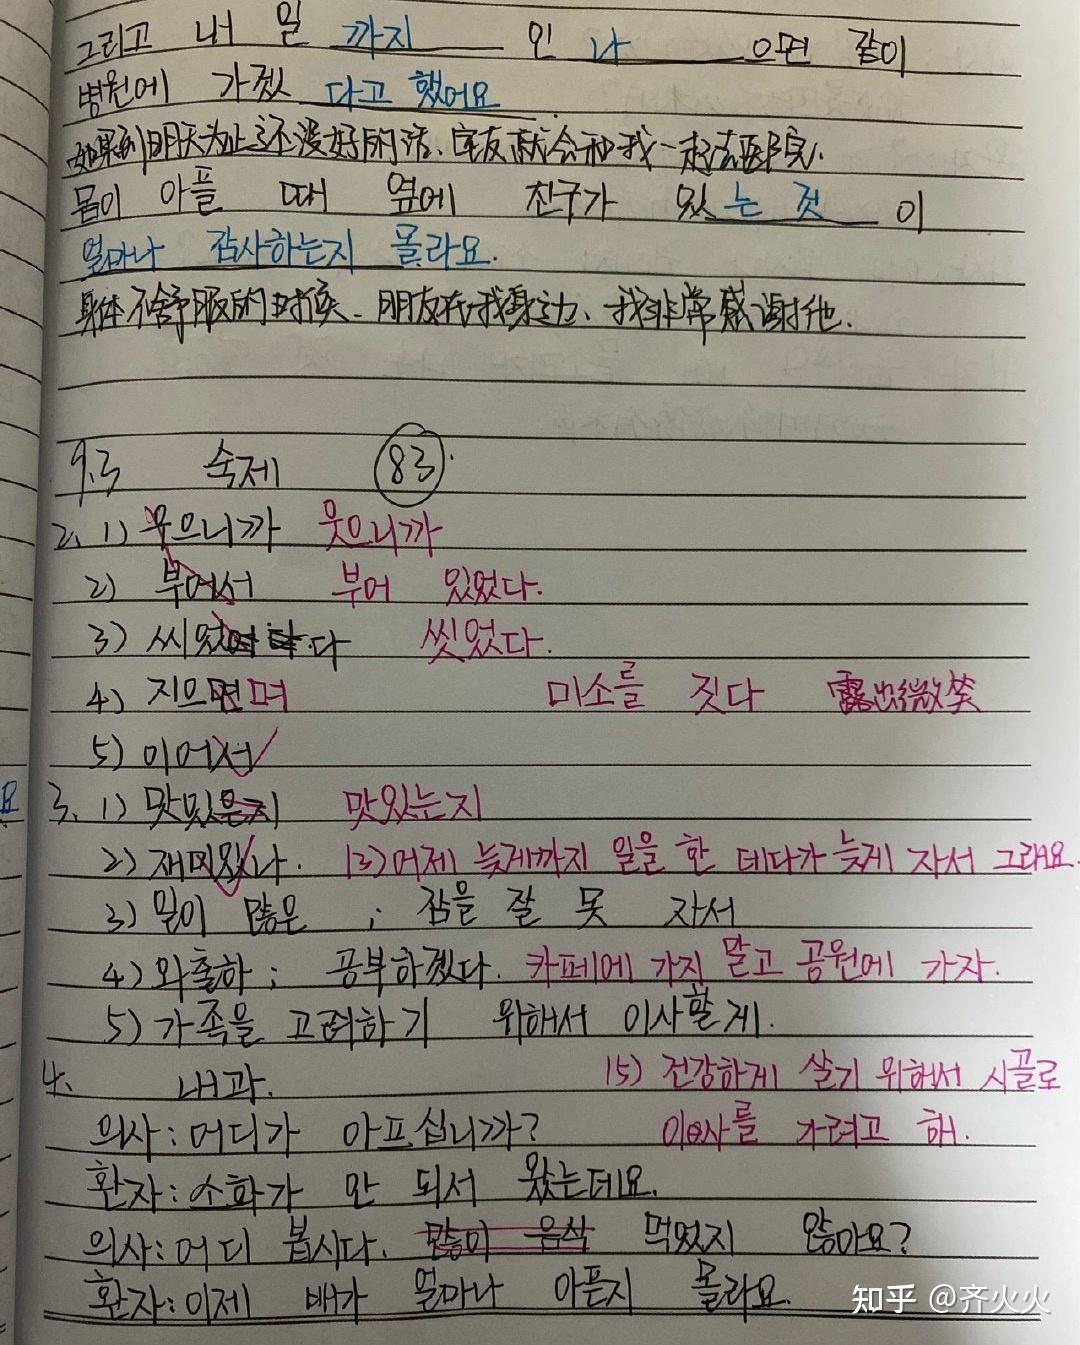 그리고 내 일 까지 인 나 으면 같이
병원에 가겠 다고 했어요
如果到明天为止还没好的话、室友就会和我一起去医院.
몸이 아플 때 옆에 친구가 있는 것 이
얼마나 감사하는지 몰라요.
身体不舒服的时候、朋友在我身边、我非常感谢他.
9.3 숙제 83.
2. 1) 우으니까 웃으니까
2) 부어서 부어 있었다.
3) 씨었 다 씻었다.
4) 지으면며 미소를 짓다 露出微笑
5) 이어서
요
3. 1) 맛있은지 맛있는지
2) 재미있나. (3) 어제 늦게까지 일을 한 데다가 늦게 자서 그래요.
3) 일이 많은 ; 잠을 잘 못 자서
4) 외출하 ; 공부하겠다. 카페에 가지 말고 공원에 가자.
5) 가족을 고려하기 위해서 이사할게.
4. 내과. (5) 건강하게 살기 위해서 시골로
의사: 어디가 아프십니까? 이사를 가려고 해.
환자: 소화가 안 되서 왔는데요.
의사: 어디 봅시다. 많이 음식 먹었지 않아요?
환자: 이제 배가 얼마나 아픈지 몰라요.
知乎 @齐火火